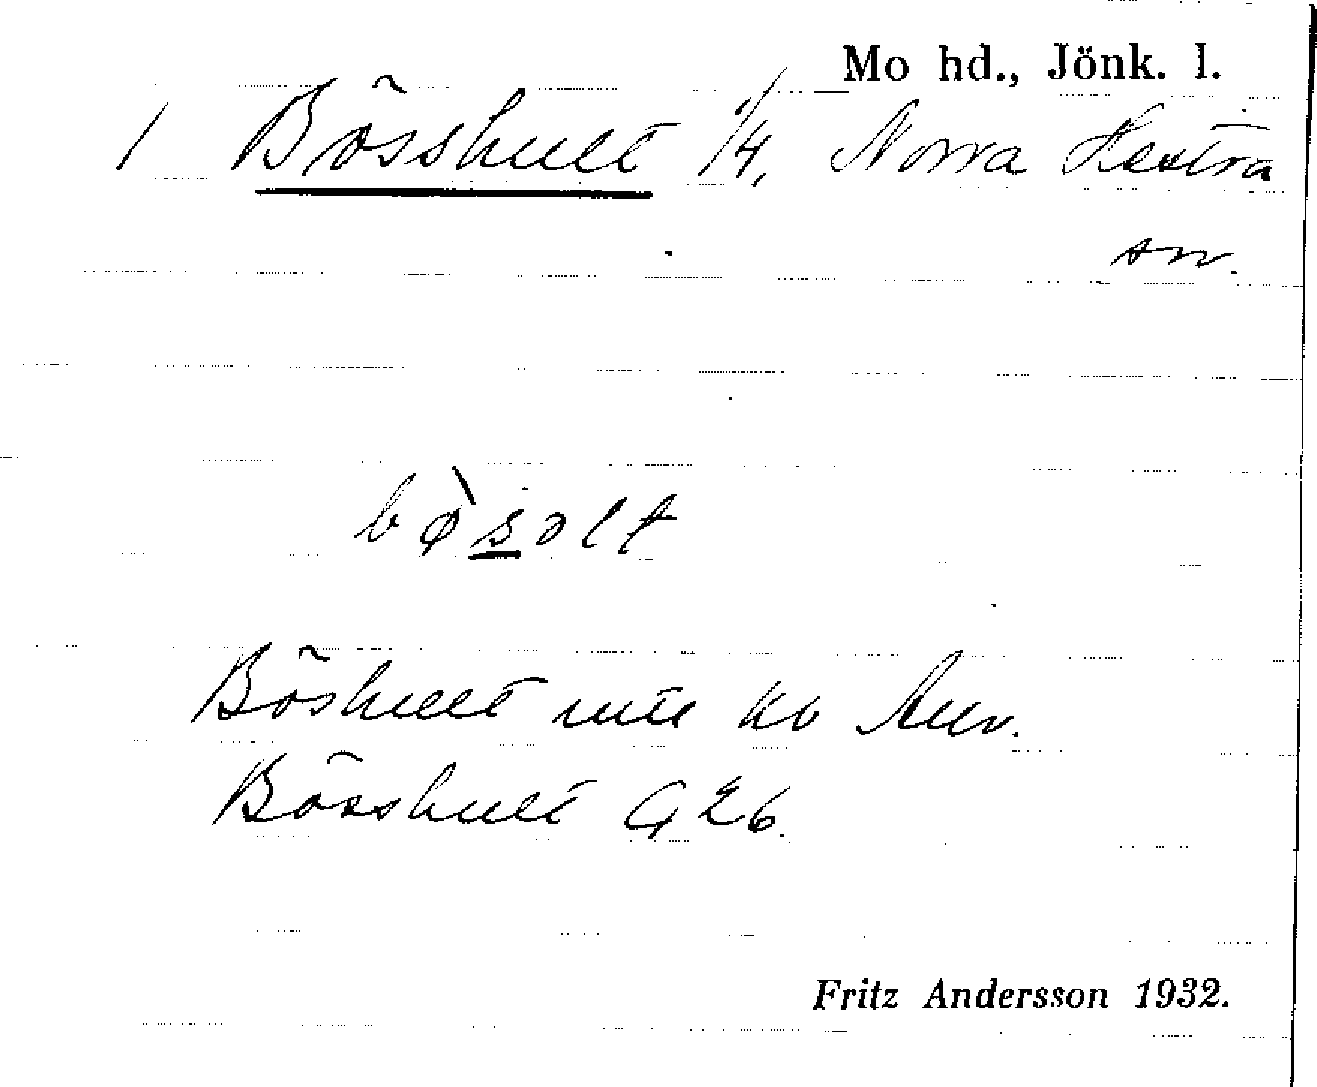 Mo hd., Jönk. l.
1 Bösshult 1/4, Norra Hestra
sn.
bø̀solt
Böshult
Bösshult G E b.
Fritz Andersson 1932.